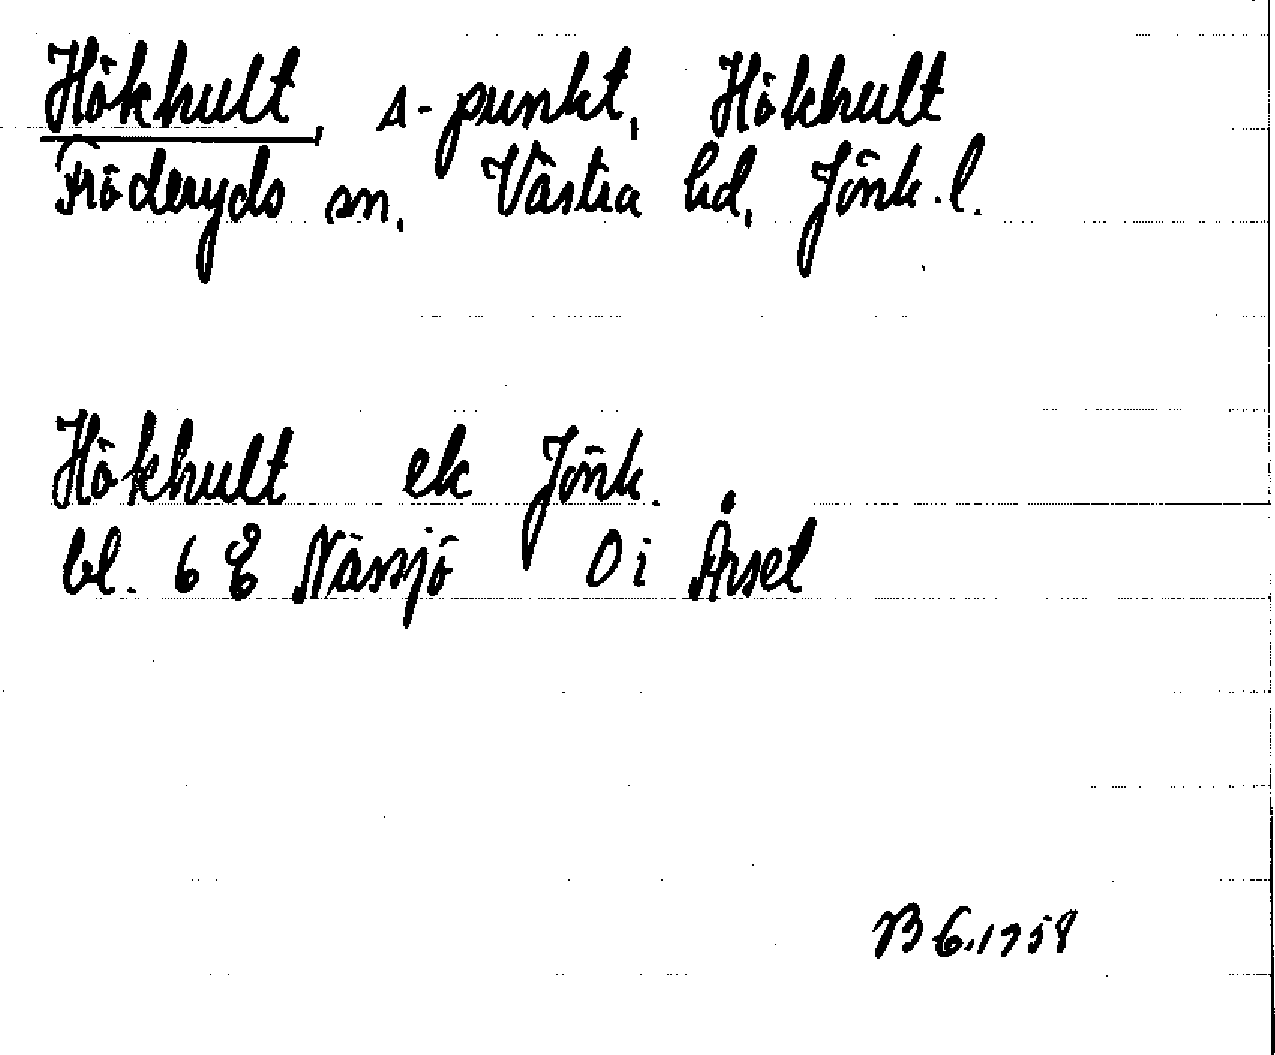 Hökhult, A-punkt, Hökhult
Fröderyds sn, Västra hd, Jönk.l.
Hökhult ek Jönk.
bl. 6 E Nässjö O i Årset
B 6.1758